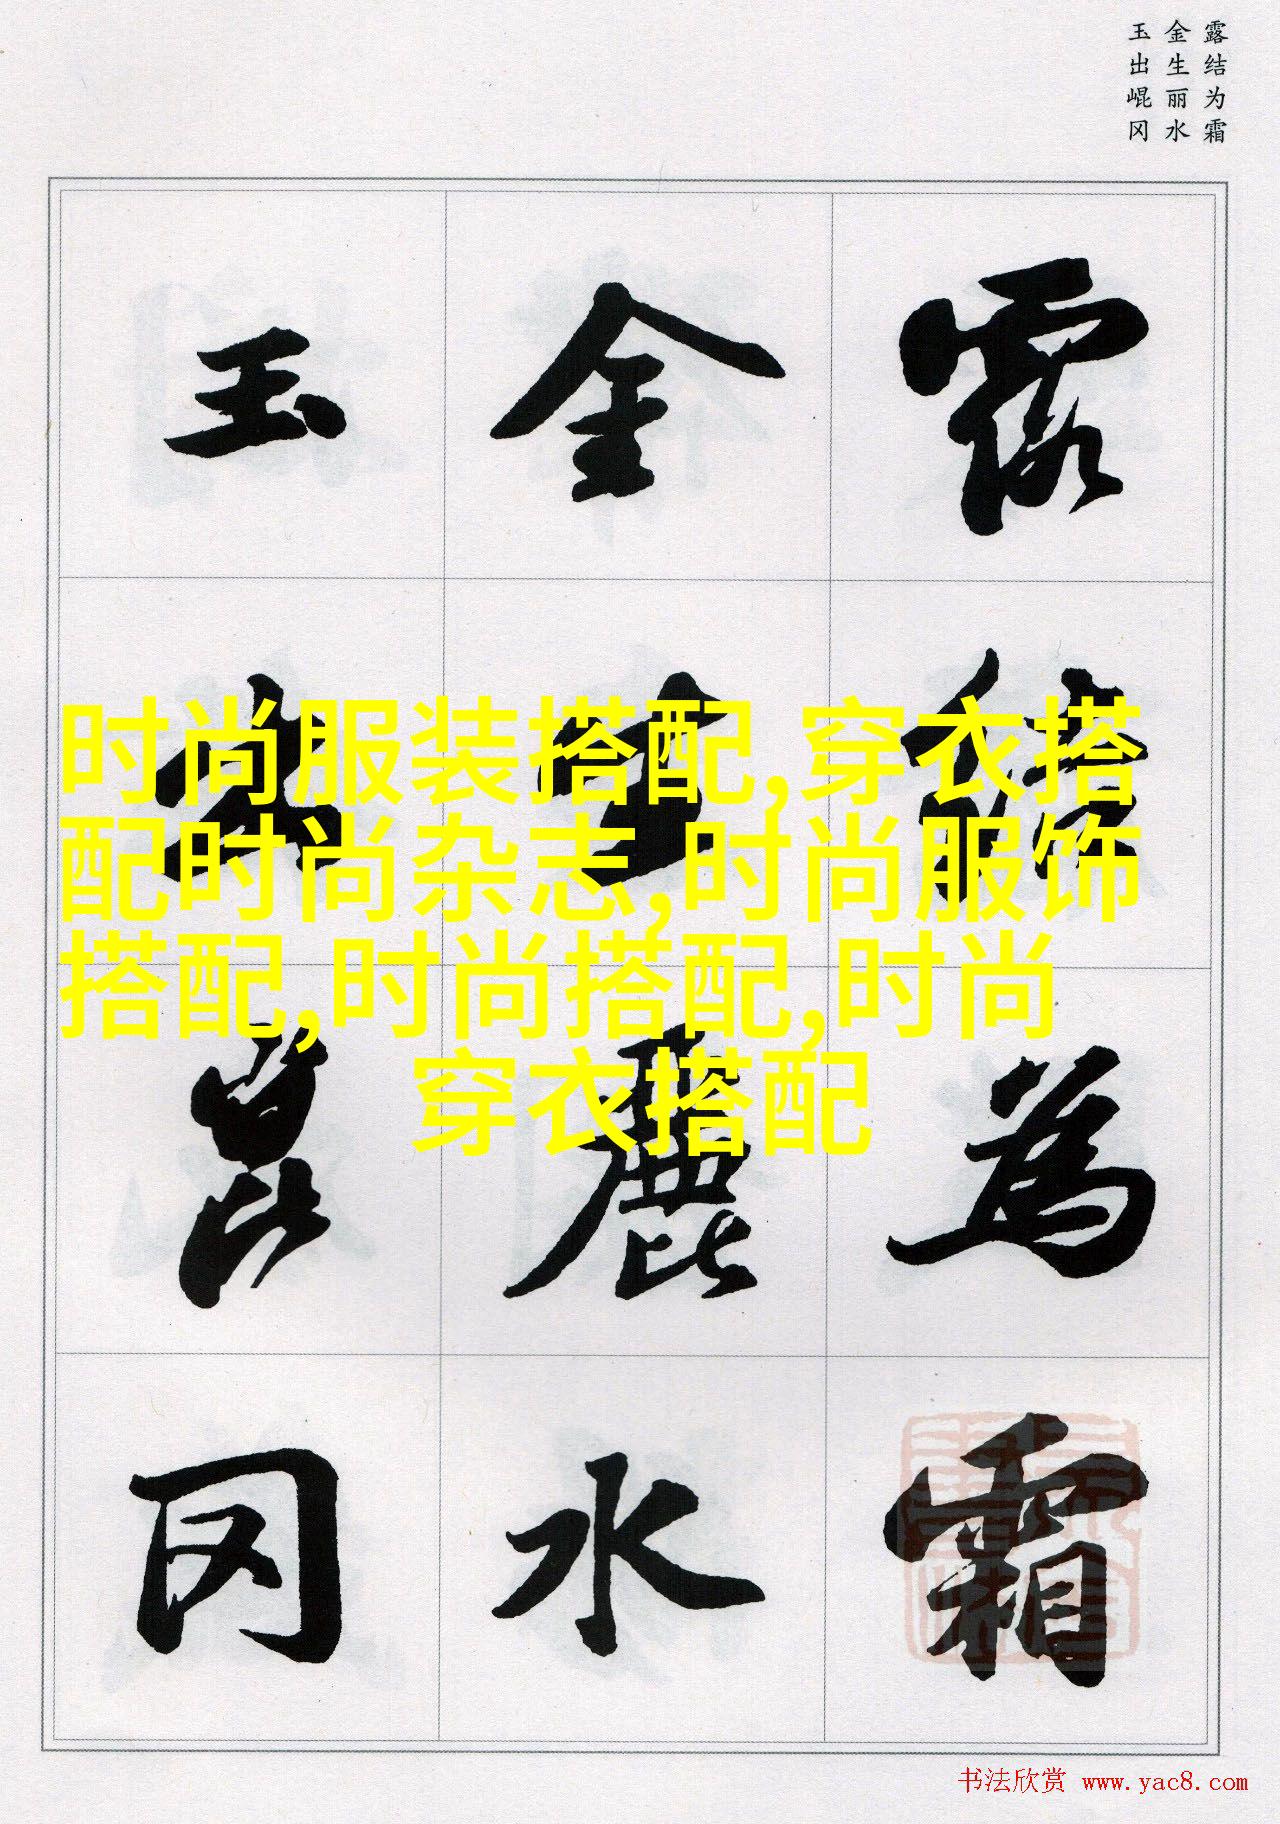 露结为霜
金生丽水
玉出崐冈
露結為霜
金生麗水
玉出崑冈
时尚服装搭配,穿衣搭
配时尚杂志,时尚服饰
搭配,时尚搭配,时尚
穿衣搭配
书法欣赏 www.yac8.com